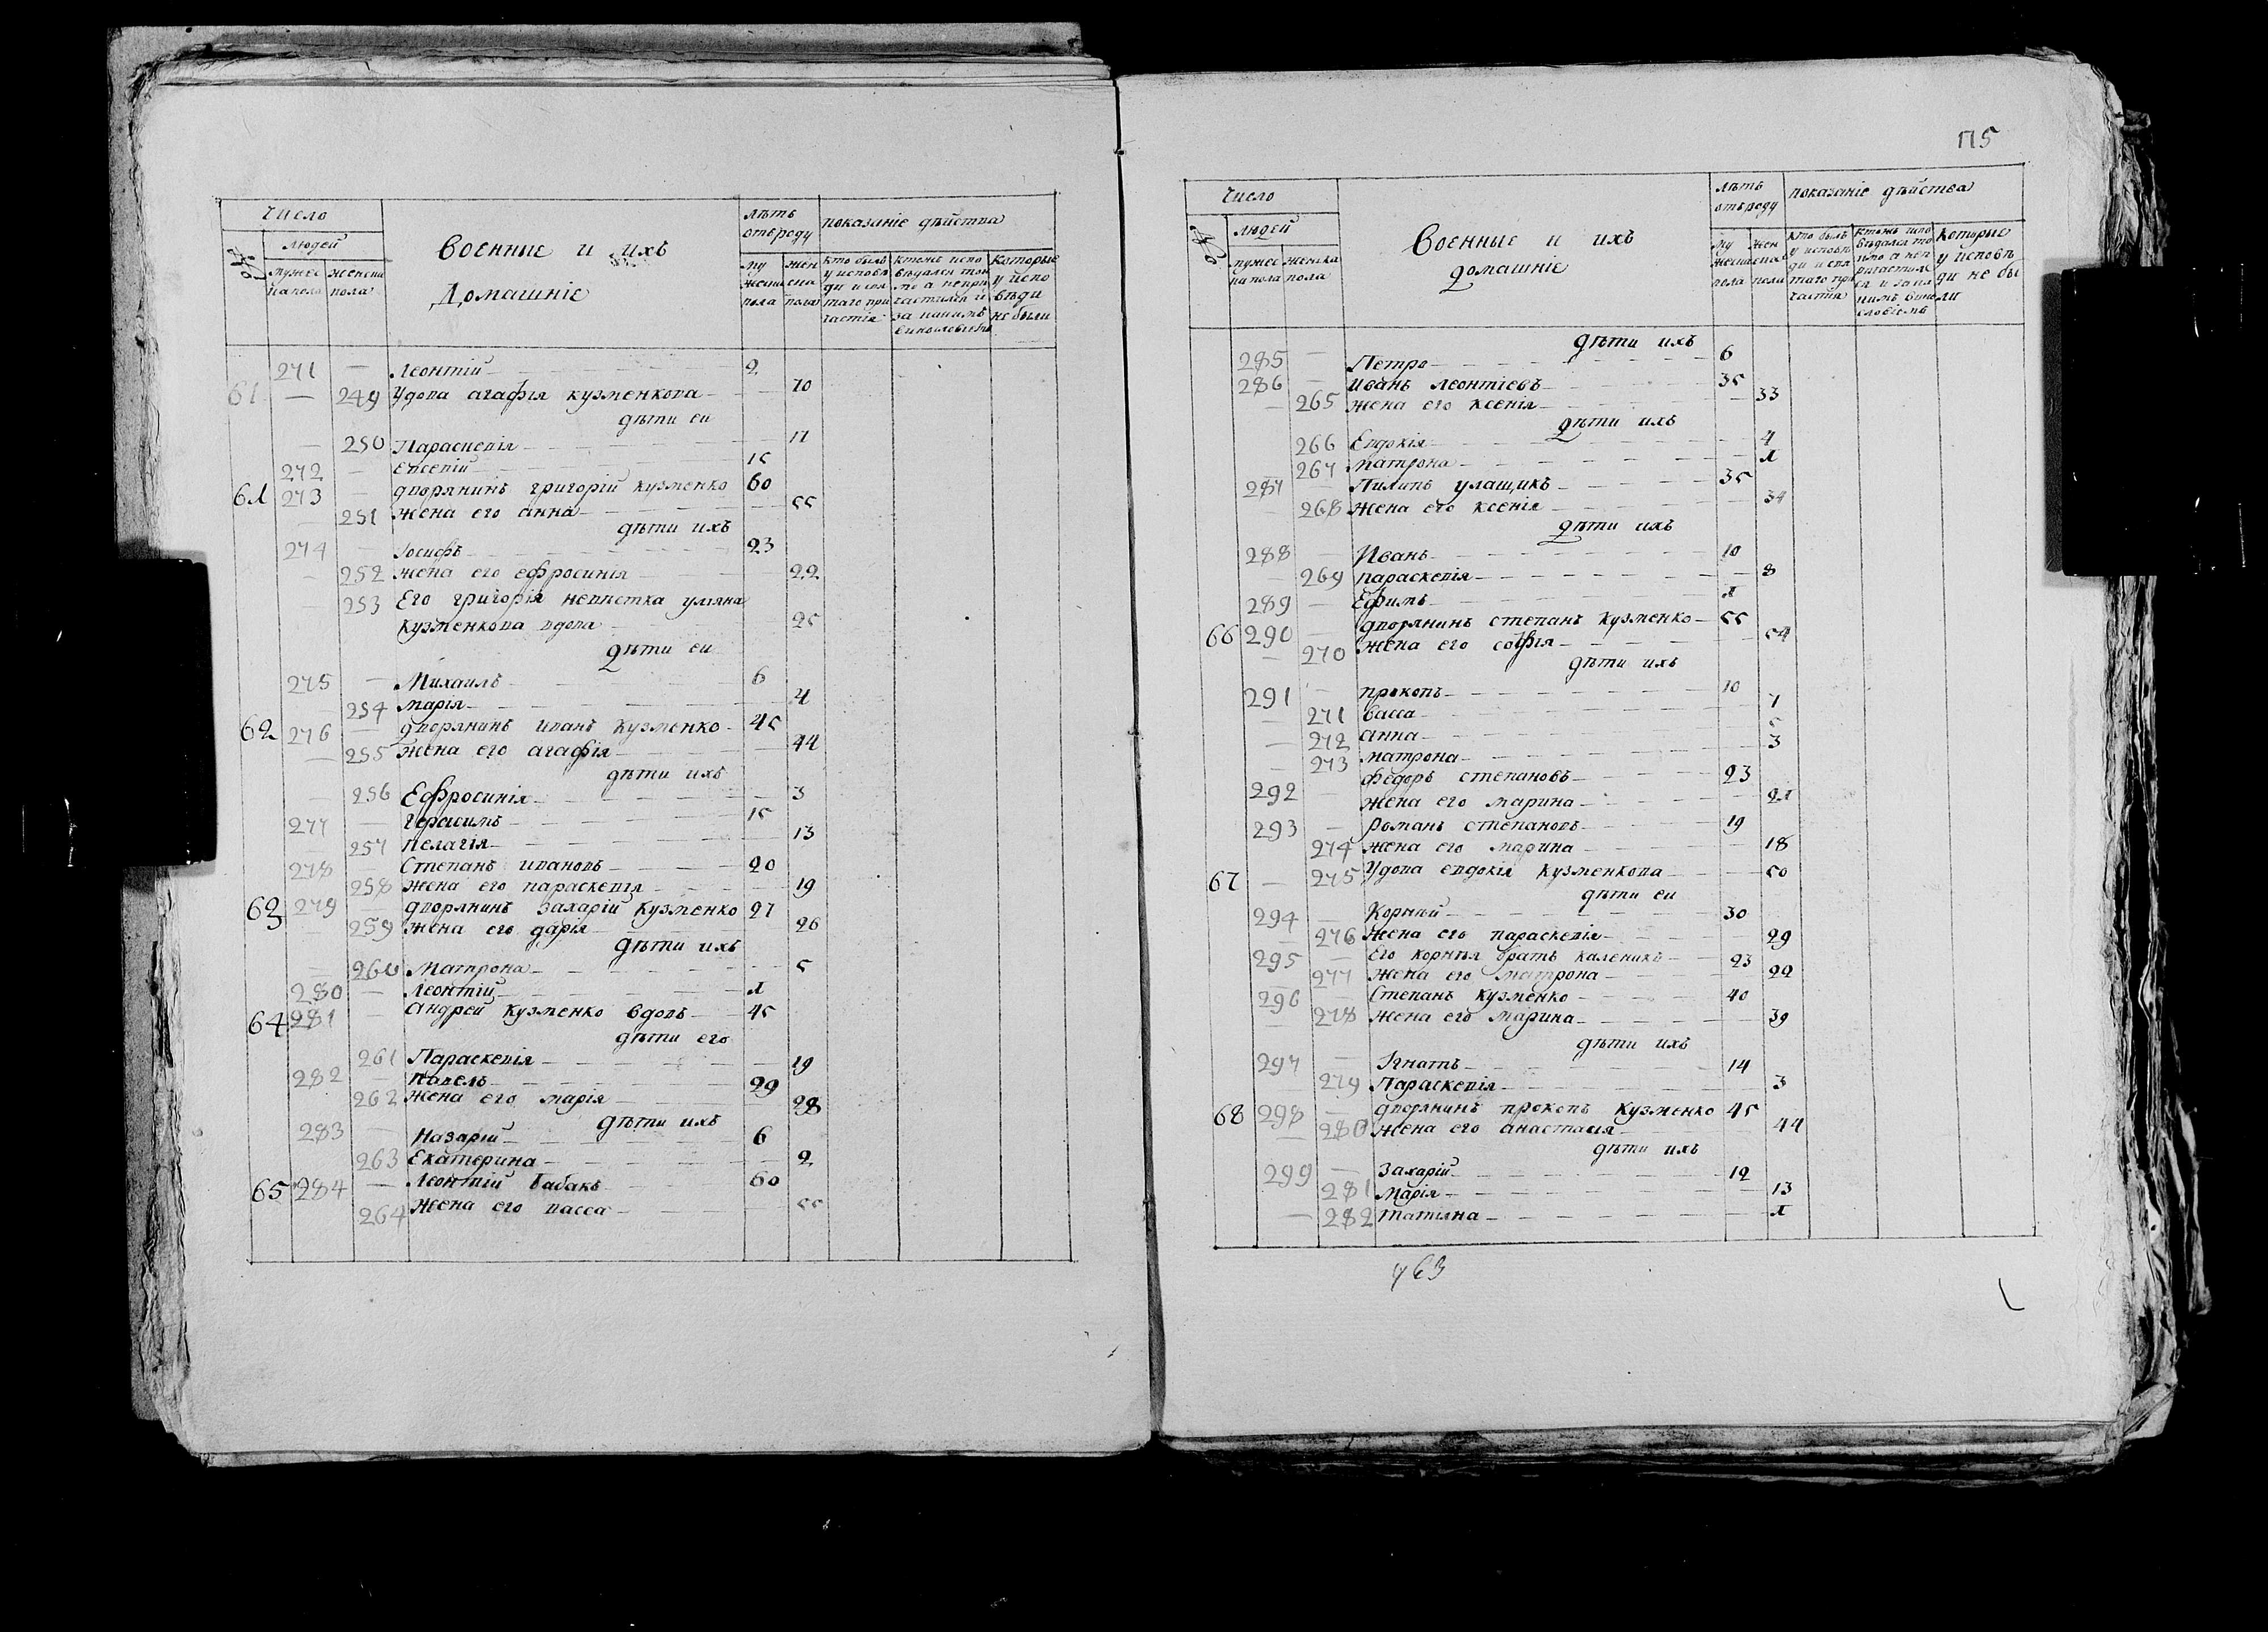 Число
военные и ихъ
лѣтъ
отъ роду
показаніе дѣйства
№
людей
Домашніе
мужес
ка пола
женска
пола
му
жеска
пола
жен
ска
пола
кто былъ
у исповѣ
ди и свя
таго при
частія
которые
у испо
вѣди
не были
271 — Леонтій 2
61 — 249 Удова агафія кузменкова 70
дѣти еи
— 250 Параскевія 17
272 — Евсевій 15
61 273 — дворянинъ григорій кузменко 60
— 251 жена его анна 55
дѣти ихъ
274 — Іосифъ 23
— 252 жена его ефросинія 22
253 Его григорія невистка уліяна
кузменкова вдова 25
дѣти еи
275 — Михаилъ 6
— 254 марія 4
62 276 — дворянинъ иванъ кузменко 45
— 255 жена его агафія 44
дѣти ихъ
— 256 Ефросинія 3
277 — герасимъ 15
— 257 пелагія 13
278 Степанъ ивановъ 20
258 жена его параскевія 19
63 279 — дворянинъ захарій кузменко 27
— 259 жена его дарія 26
дѣти ихъ
— 260 Матрона 5
280 — Леонтій 1
64 281 — андрей кузменко вдовъ 45
дѣти его
261 Параскевія 19
282 — павелъ 29
262 жена его марія 28
дѣти ихъ
283 — Назарій 6
263 Екатерина 2
65 284 — Леонтій бабакъ 60
264 жена его васса 55
175
Число
военные и ихъ
лѣтъ
отъ роду
показаніе дѣйства
№
людей
домашніе
мужес
ка пола
женска
пола
му
жеска
пола
жен
ска
пола
кто былъ
у исповѣ
ди и свя
таго при
частія
которые
у исповѣ
ди не бы
ли
дѣти ихъ
285 — Петро 6
286 — иванъ леонтіевъ 35
— 265 жена его ксенія 33
дѣти ихъ
266 Евдокія 4
— 267 матрона 1
287 — Пилипъ улащикъ 35
— 268 жена его ксенія 34
дѣти ихъ
288 — Иванъ 10
— 269 параскевія 8
289 — Ефимъ 1
66 290 — дворянинъ степанъ кузменко 55
— 270 жена его софія 54
дѣти ихъ
291 — прокопъ 10
— 271 васса 7
— 272 анна 5
— 273 матрона 3
292 — федоръ степановъ 23
жена его марина 21
293 — романъ степановъ 19
274 жена его марина 18
67 — 275 Удова евдокія кузменкова 50
дѣти еи
294 — Корнѣй 30
— 276 жена его параскевія 29
295 — Его корнѣя братъ каленикъ 23
— 277 жена его матрона 22
296 — Степанъ кузменко 40
— 278 жена его марина 39
дѣти ихъ
297 — Ігнатъ 14
279 Параскевія 3
68 298 — дворянинъ прокопъ кузменко 45
— 280 жена его анастасія 44
дѣти ихъ
299 — захарій 12
281 марія 13
— 282 татіяна 1
763